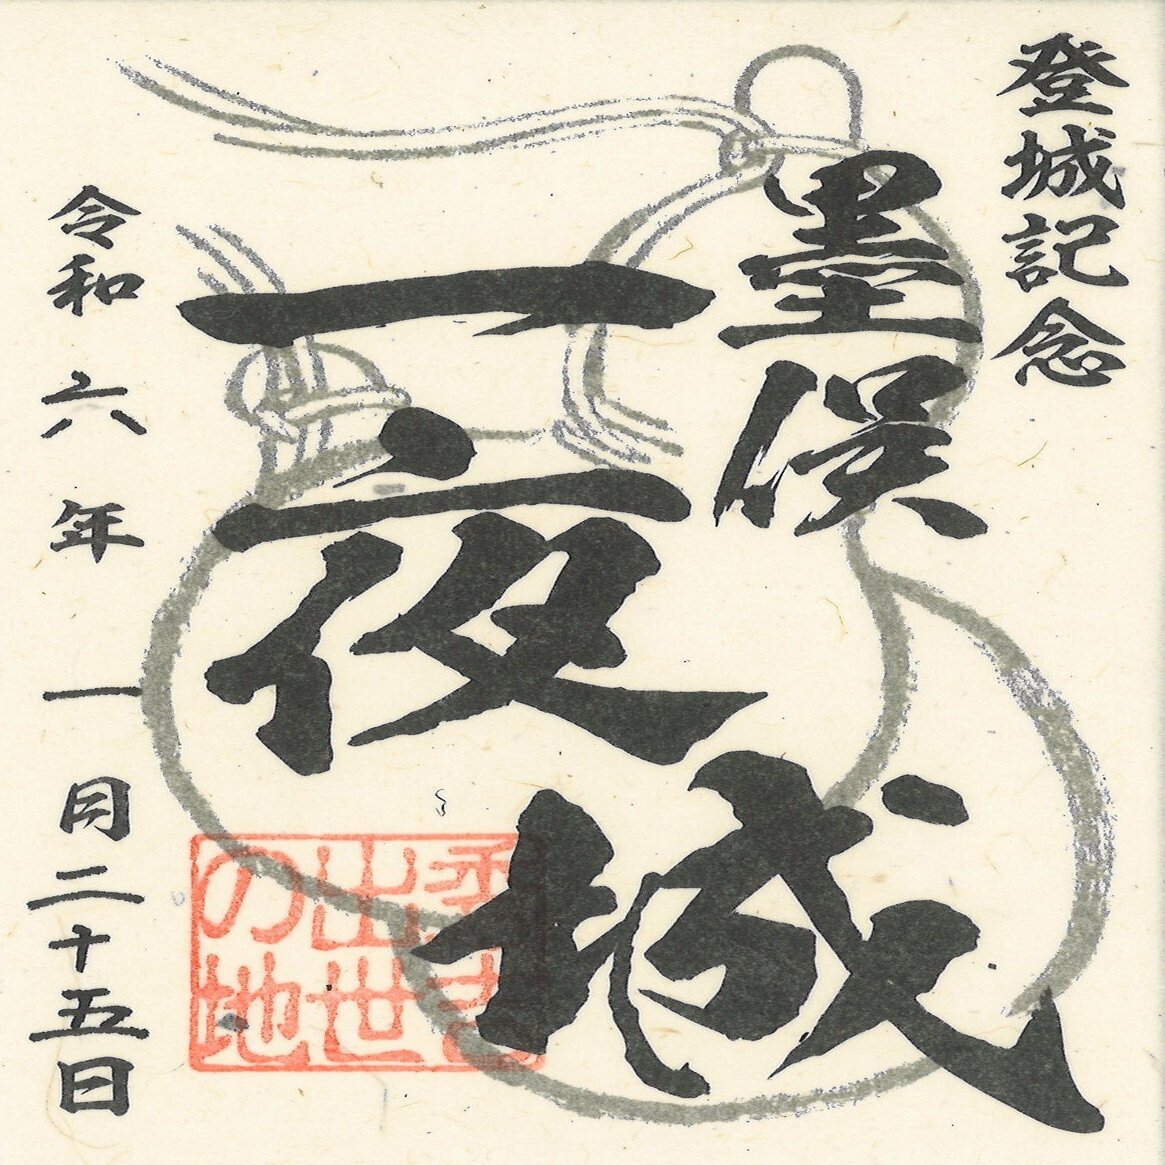 登城記念
墨俣
一夜城
秀吉
出世
の地
令和六年一月二十五日